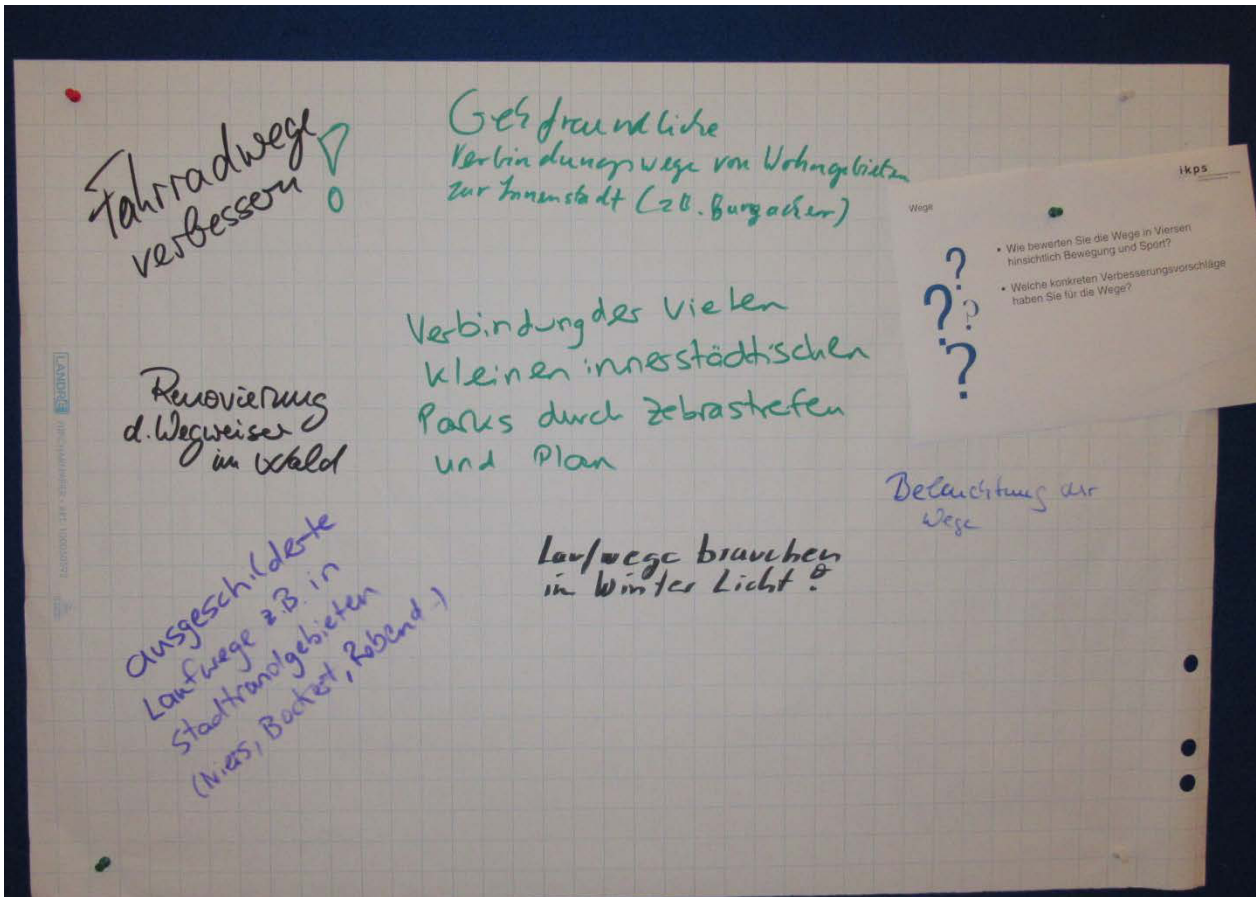 Fahrradwege
verbessern !
Gehfreundliche
Verbindungswege von Wohngebieten
zur Innenstadt (z.B. Burgacker)
ikps
Wege
• Wie bewerten Sie die Wege in Viersen
hinsichtlich Bewegung und Sport?
• Welche konkreten Verbesserungsvorschläge
haben Sie für die Wege?
? ? ? ?
Verbindung der vielen
kleinen innerstädtischen
Parks durch Zebrastreifen
und Plan
Renovierung
d. Wegweiser
im Wald
Beleuchtung der
Wege
Laufwege brauchen
in Winter Licht!
ausgeschilderte
Laufwege z.B. in
Stadtrandgebieten
(Niers, Bockert, Robend)
LANDRÉ